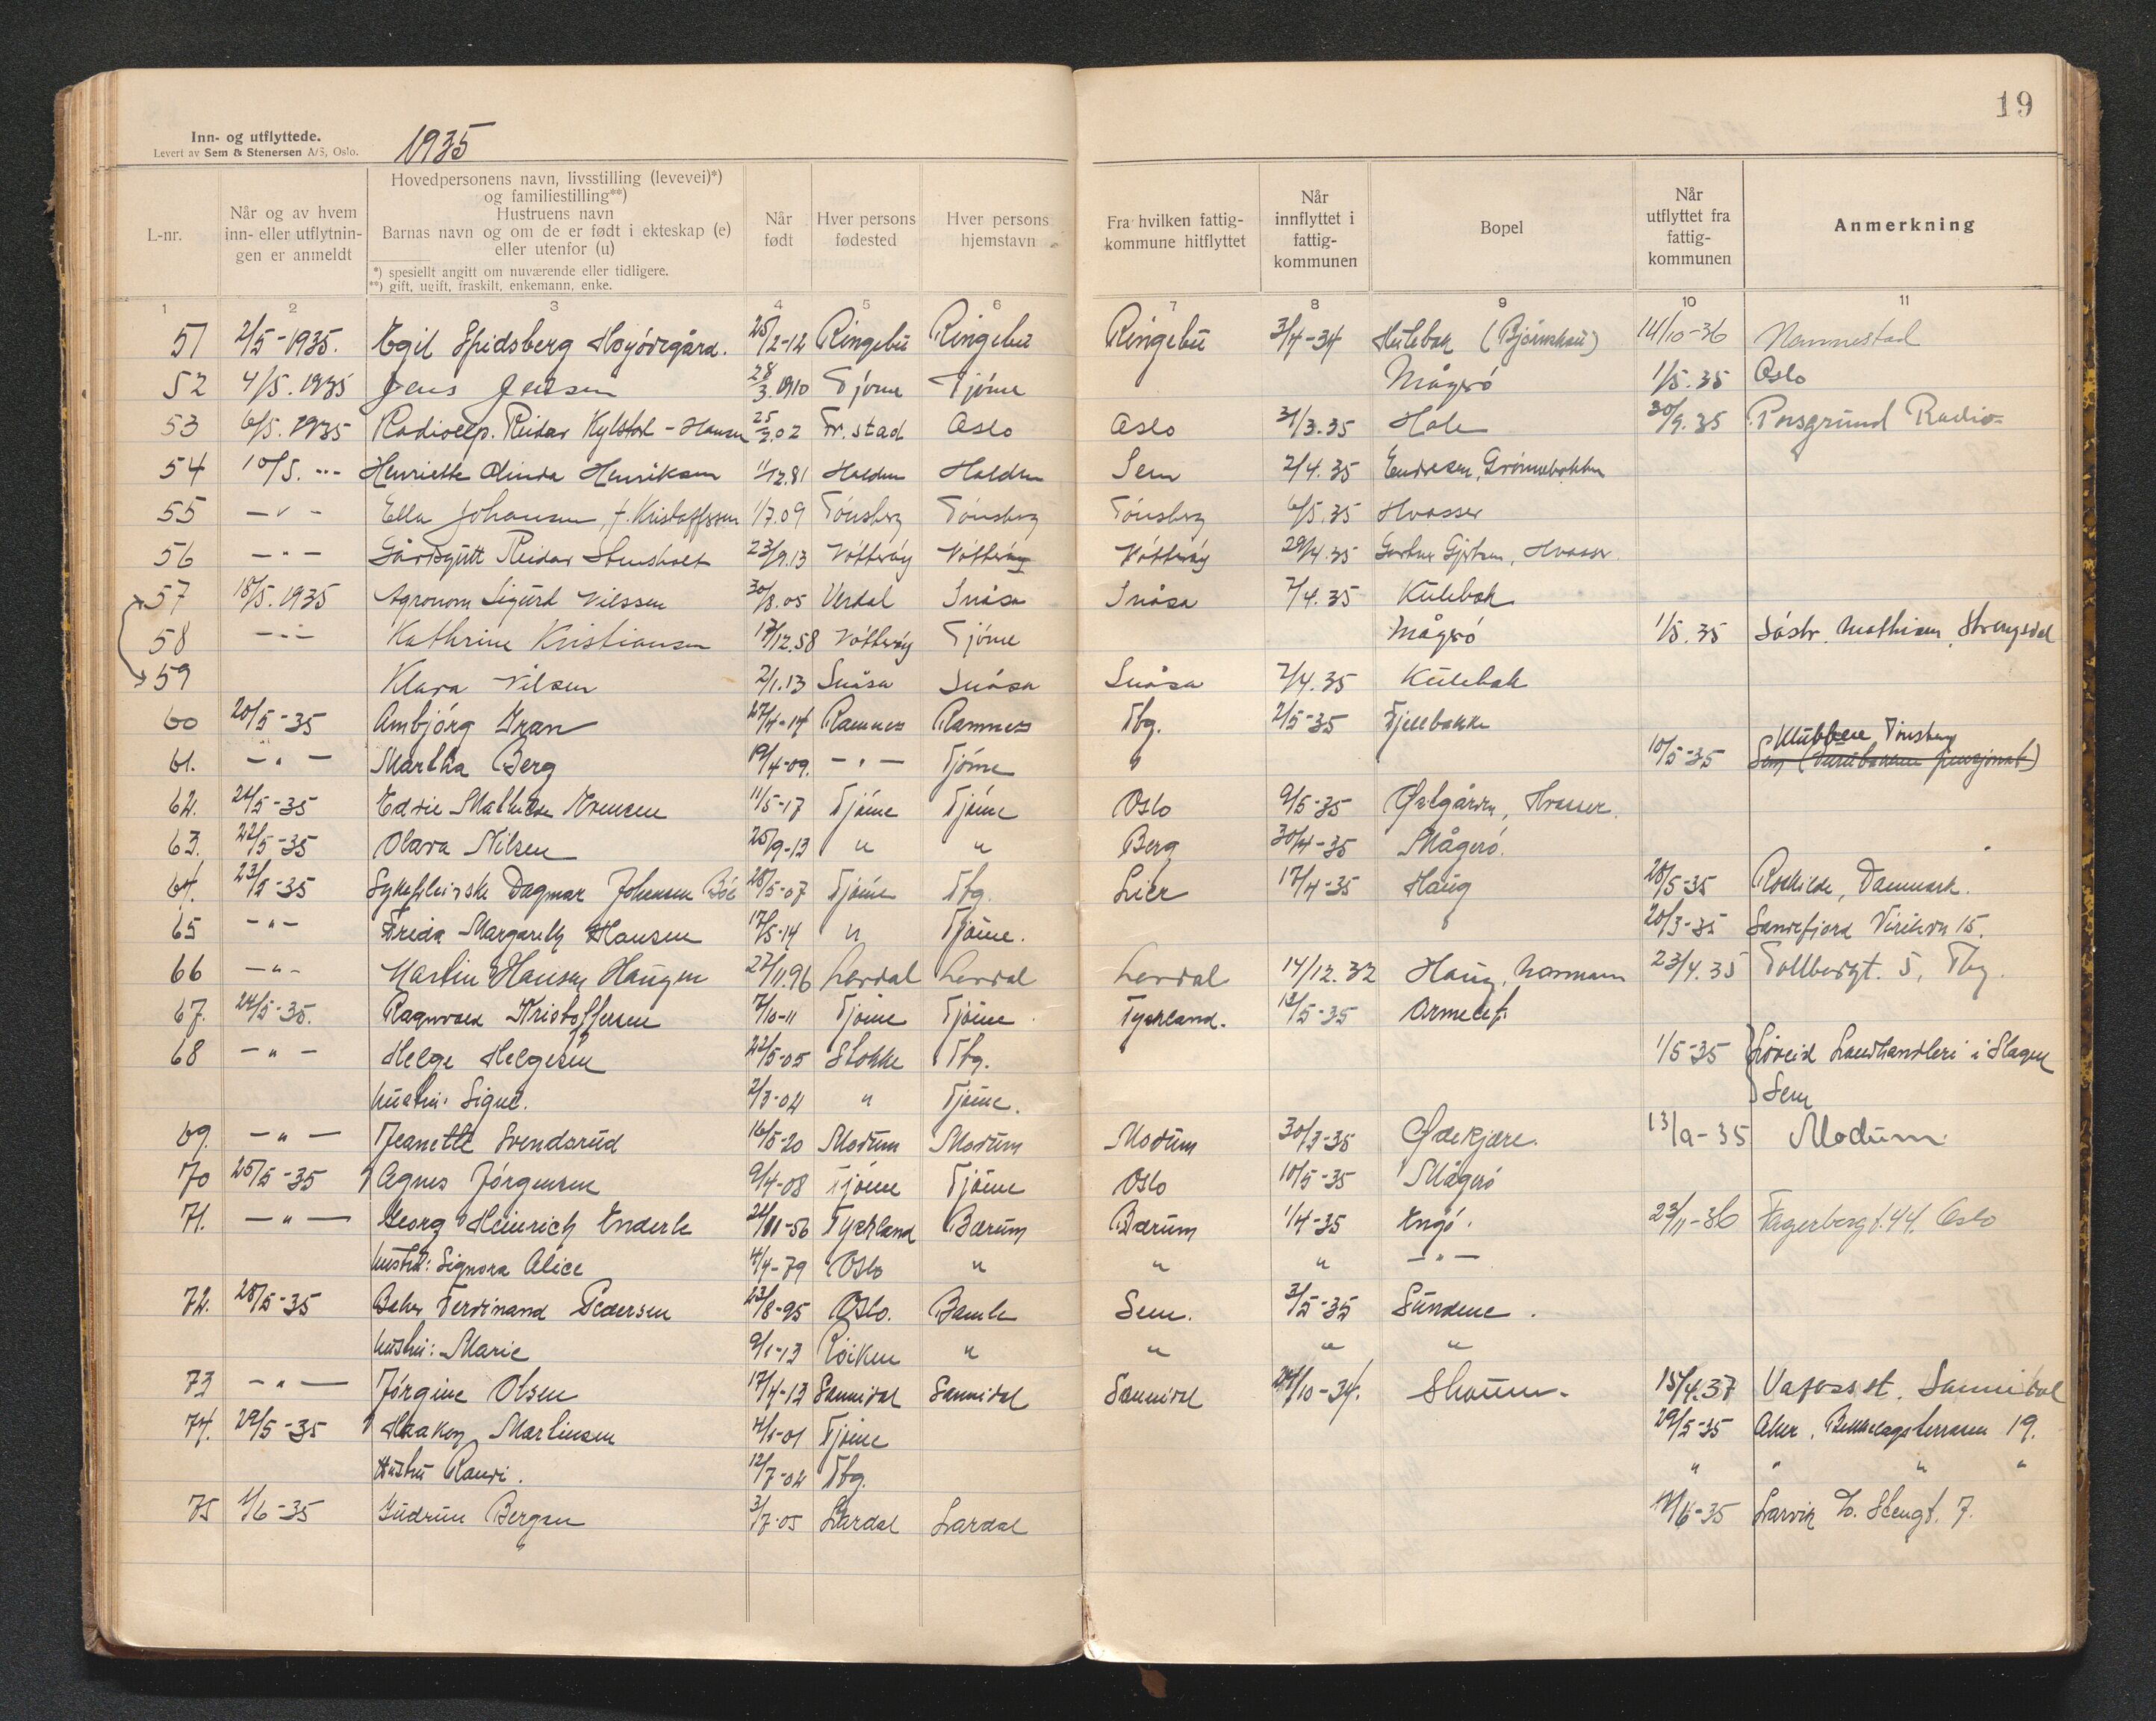 19
Inn- og utflyttede.
Levert av Sem & Stenersen A/S, Oslo.
1935
L-nr.
Når og av hvem inn- eller utflytningen er anmeldt
Hovedpersonens navn, livsstilling (levevei)*) og familiestilling**)
Hustruens navn
Barnas navn og om de er født i ekteskap (e) eller utenfor (u)
*) spesiellt angitt om nuværende eller tidligere.
**) gift, ugift, fraskilt, enkemann, enke.
Når født
Hver persons fødested
Hver persons hjemstavn
Fra hvilken fattigkommune hitflyttet
Når innflyttet i fattigkommunen
Bopel
Når utflyttet fra fattigkommunen
Anmerkning
1 2 3 4 5 6 7 8 9 10 11
51 2/5-1935. Egil Spidsberg 25/2-12 Ringebu Ringebu Ringebu 3/4-34 Hulebak 14/10-36 Nannestad
52 4/5.1935 Jens Jensen 28/3.1910 Tjöme Tjöme Mågerö 1/5.35 Oslo
53 6/5.1935 Radioexp. Reidar Kylstad-Hansen 25/2.02 Fr.stad Oslo Oslo 31/3.35 Hole 30/9.35 Porsgrund Radio-
54 10/5. --- Henriette Olinda Henriksen 1/12.81 Halden Halden Sem 2/4.35 Endresen, Grönnebakken
55 -"- Ella Johansen, f. Kristoffersen 1/7.09 Tönsberg Tönsberg Tönsberg 6/5.35 Hvasser
56 -"- Gårdsgutt Reidar Stensholt 23/9.13 Nötteröy Nötteröy Nötteröy 29/4.35 Gartner Gjertsen, Hvasser
57 18/5.1935 Agronom Sigurd Nilssen 30/8.05 Verdal Snåsa Snåsa 7/4.35 Kulebak
58 -"- Kathrine Kristiansen 17/12.58 Nötteröy Tjöme Mågerö 1/5.35 Söstr. Mathisen, Strengsdal
59 Klara Nilsen 2/1.13 Snåsa Snåsa Snåsa 7/4.35 Kulebak
60 20/5-35 Ambjörg Iran 27/4-14 Ramnes Ramnes Tbg. 2/5-35 Fjellbakke
61. -"- Martha Berg 19/4-09. -"- Tjöme 10/5-35 Klubben Tönsberg
62. 21/5-35 Edvin 11/5-17 Tjöme Tjöme Oslo 9/5-35 Östgården, Hvasser.
63. 22/5-35 Olava Nilsen 25/9-13 " " Berg 30/4-35 Mågerö.
64. 23/5-35 Sykepleierske Dagmar Johansen Böe 28/5-07 Tjöme Tbg. Lier 17/4-35 Haug 28/5-35 Roskilde, Danmark.
65 -"- Frida Margareth Hansen 17/5-14 " Tjöme. 20/3-35 Sandefjord Virikvn 15.
66 -"- Martin Hansen Haugen 27/11.96 Lardal Lardal Lardal 14/12.32 Haug, Normann 23/4.35 Tollbergt. 5, Tbg.
67. 24/5-35. Ragnvald Kristoffersen 7/10-11 Tjöme Tjöme Tyskland. 13/5-35 Ormelet.
68 -"- Helge Helgesen 23/5-05 Stokke Tbg. 1/5-35 Löveid Landhandleri i Slagen
hustru: Signe. 2/3-04 " Tjöme. Sem
69. -"- Jeanette Svendsrud 16/5-20 Modum Modum Modum 30/3-35 Ödekjære. 13/9-35 Modum
70 25/5-35 Agnes Jörgensen 9/4-08 Tjöme Tjöme Oslo 10/5-35 Mågerö
71. -"- Georg Heinrich Enderle 21/11-56 Tyskland Bærum Bærum 1/4-35 Engö. 23/11-36 Fagerborgt. 44. Oslo
hustru: Signora Alice 4/4-79 Oslo " " " -"-
72. 28/5-35 Baker Ferdinand Pedersen 23/8-95 Oslo. Bamle Sem. 3/5-35 Sundene.
hustru: Marie 9/1-13 Röiken " " " "
73 -"- Jörgine Olsen 17/4-13 Sannidal Sannidal Sannidal 24/10-34. Skauen. 15/4.37 Vafoss st. Sannidal
74. 29/5-35 Haakon Martinsen 4/1-01 Tjöme 29/5-35 Aker, Bekkelagsterrasen 19.
Hustru Randi. 12/7-04 Tbg. " " " "
75 1/6-35 Gudrun Bergan 3/7-05 Lardal Lardal 1/6-35 Larvik 7.